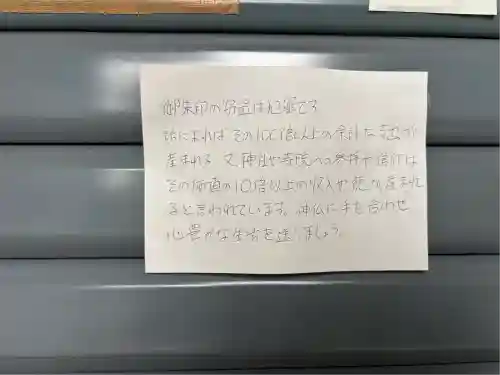 御朱印の窃盗は犯罪です
によればその100倍以上の余計な
産まれる 又神社や寺院への参拝や
その価値の10倍以上の収入や徳が産まれ
ると言われています。神仏に手を合わせ
心豊かな生活を送りましょう。